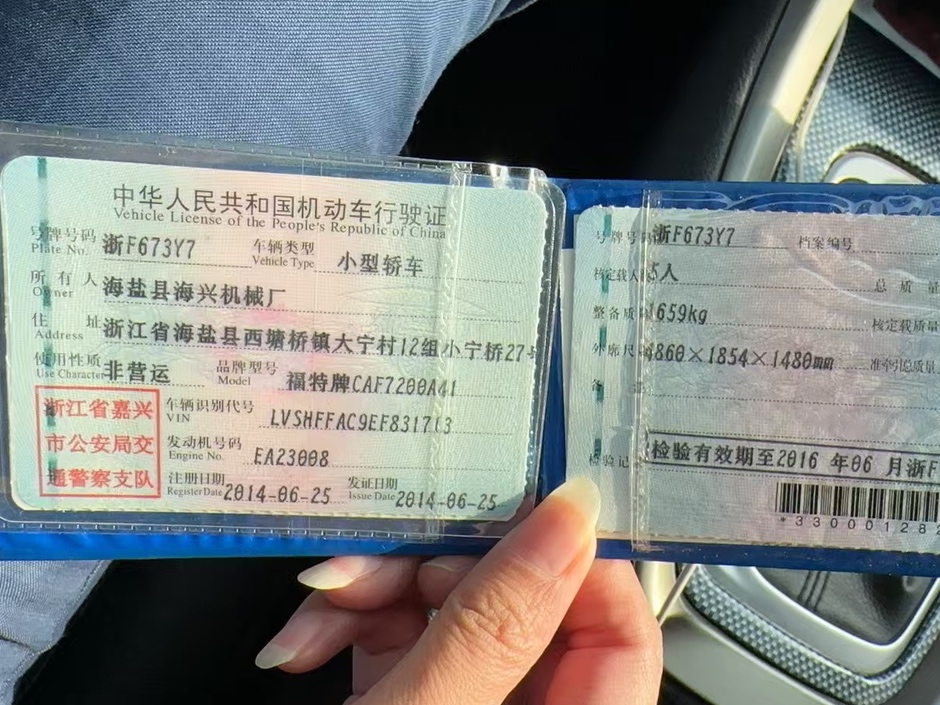 中华人民共和国机动车行驶证
Vehicle License of the People's Republic of China
号牌号码 浙F673Y7 车辆类型 小型轿车
Plate No. Vehicle Type
所有人 海盐县海兴机械厂
Owner
住址 浙江省海盐县西塘桥镇大宁村12组小宁桥27号
Address
使用性质 非营运 品牌型号 福特牌CAF7200A41
Use Character Model
浙江省嘉兴
市公安局交
通警察支队
车辆识别代号 LVSHFFAC9EF831713
VIN
发动机号码 EA23008
Engine No.
注册日期 2014-06-25 发证日期 2014-06-25
Register Date Issue Date
号牌号码 浙F673Y7 档案编号
核定载人数 5人 总质量
整备质量 1659kg 核定载质量
外廓尺寸 4860×1854×1480mm 准牵引总质量
备注
检验记录 检验有效期至2016年06月浙F
*330000128